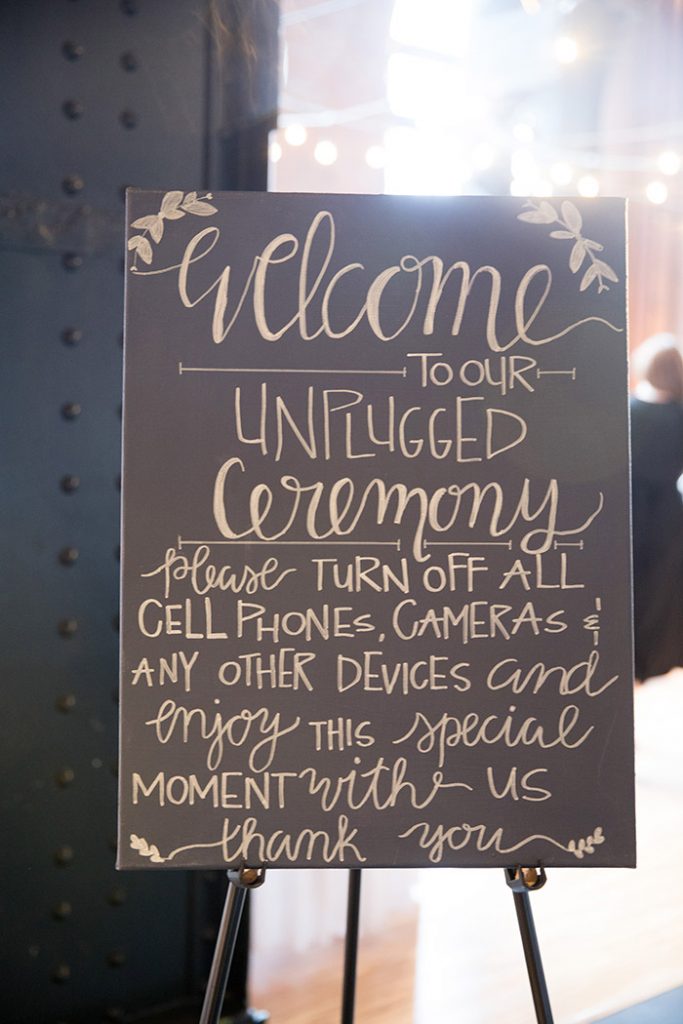 Welcome
TO OUR
UNPLUGGED
Ceremony
please TURN OFF ALL
CELL PHONES, CAMERAS &
ANY OTHER DEVICES and
enjoy THIS special
MOMENT with US
thank you